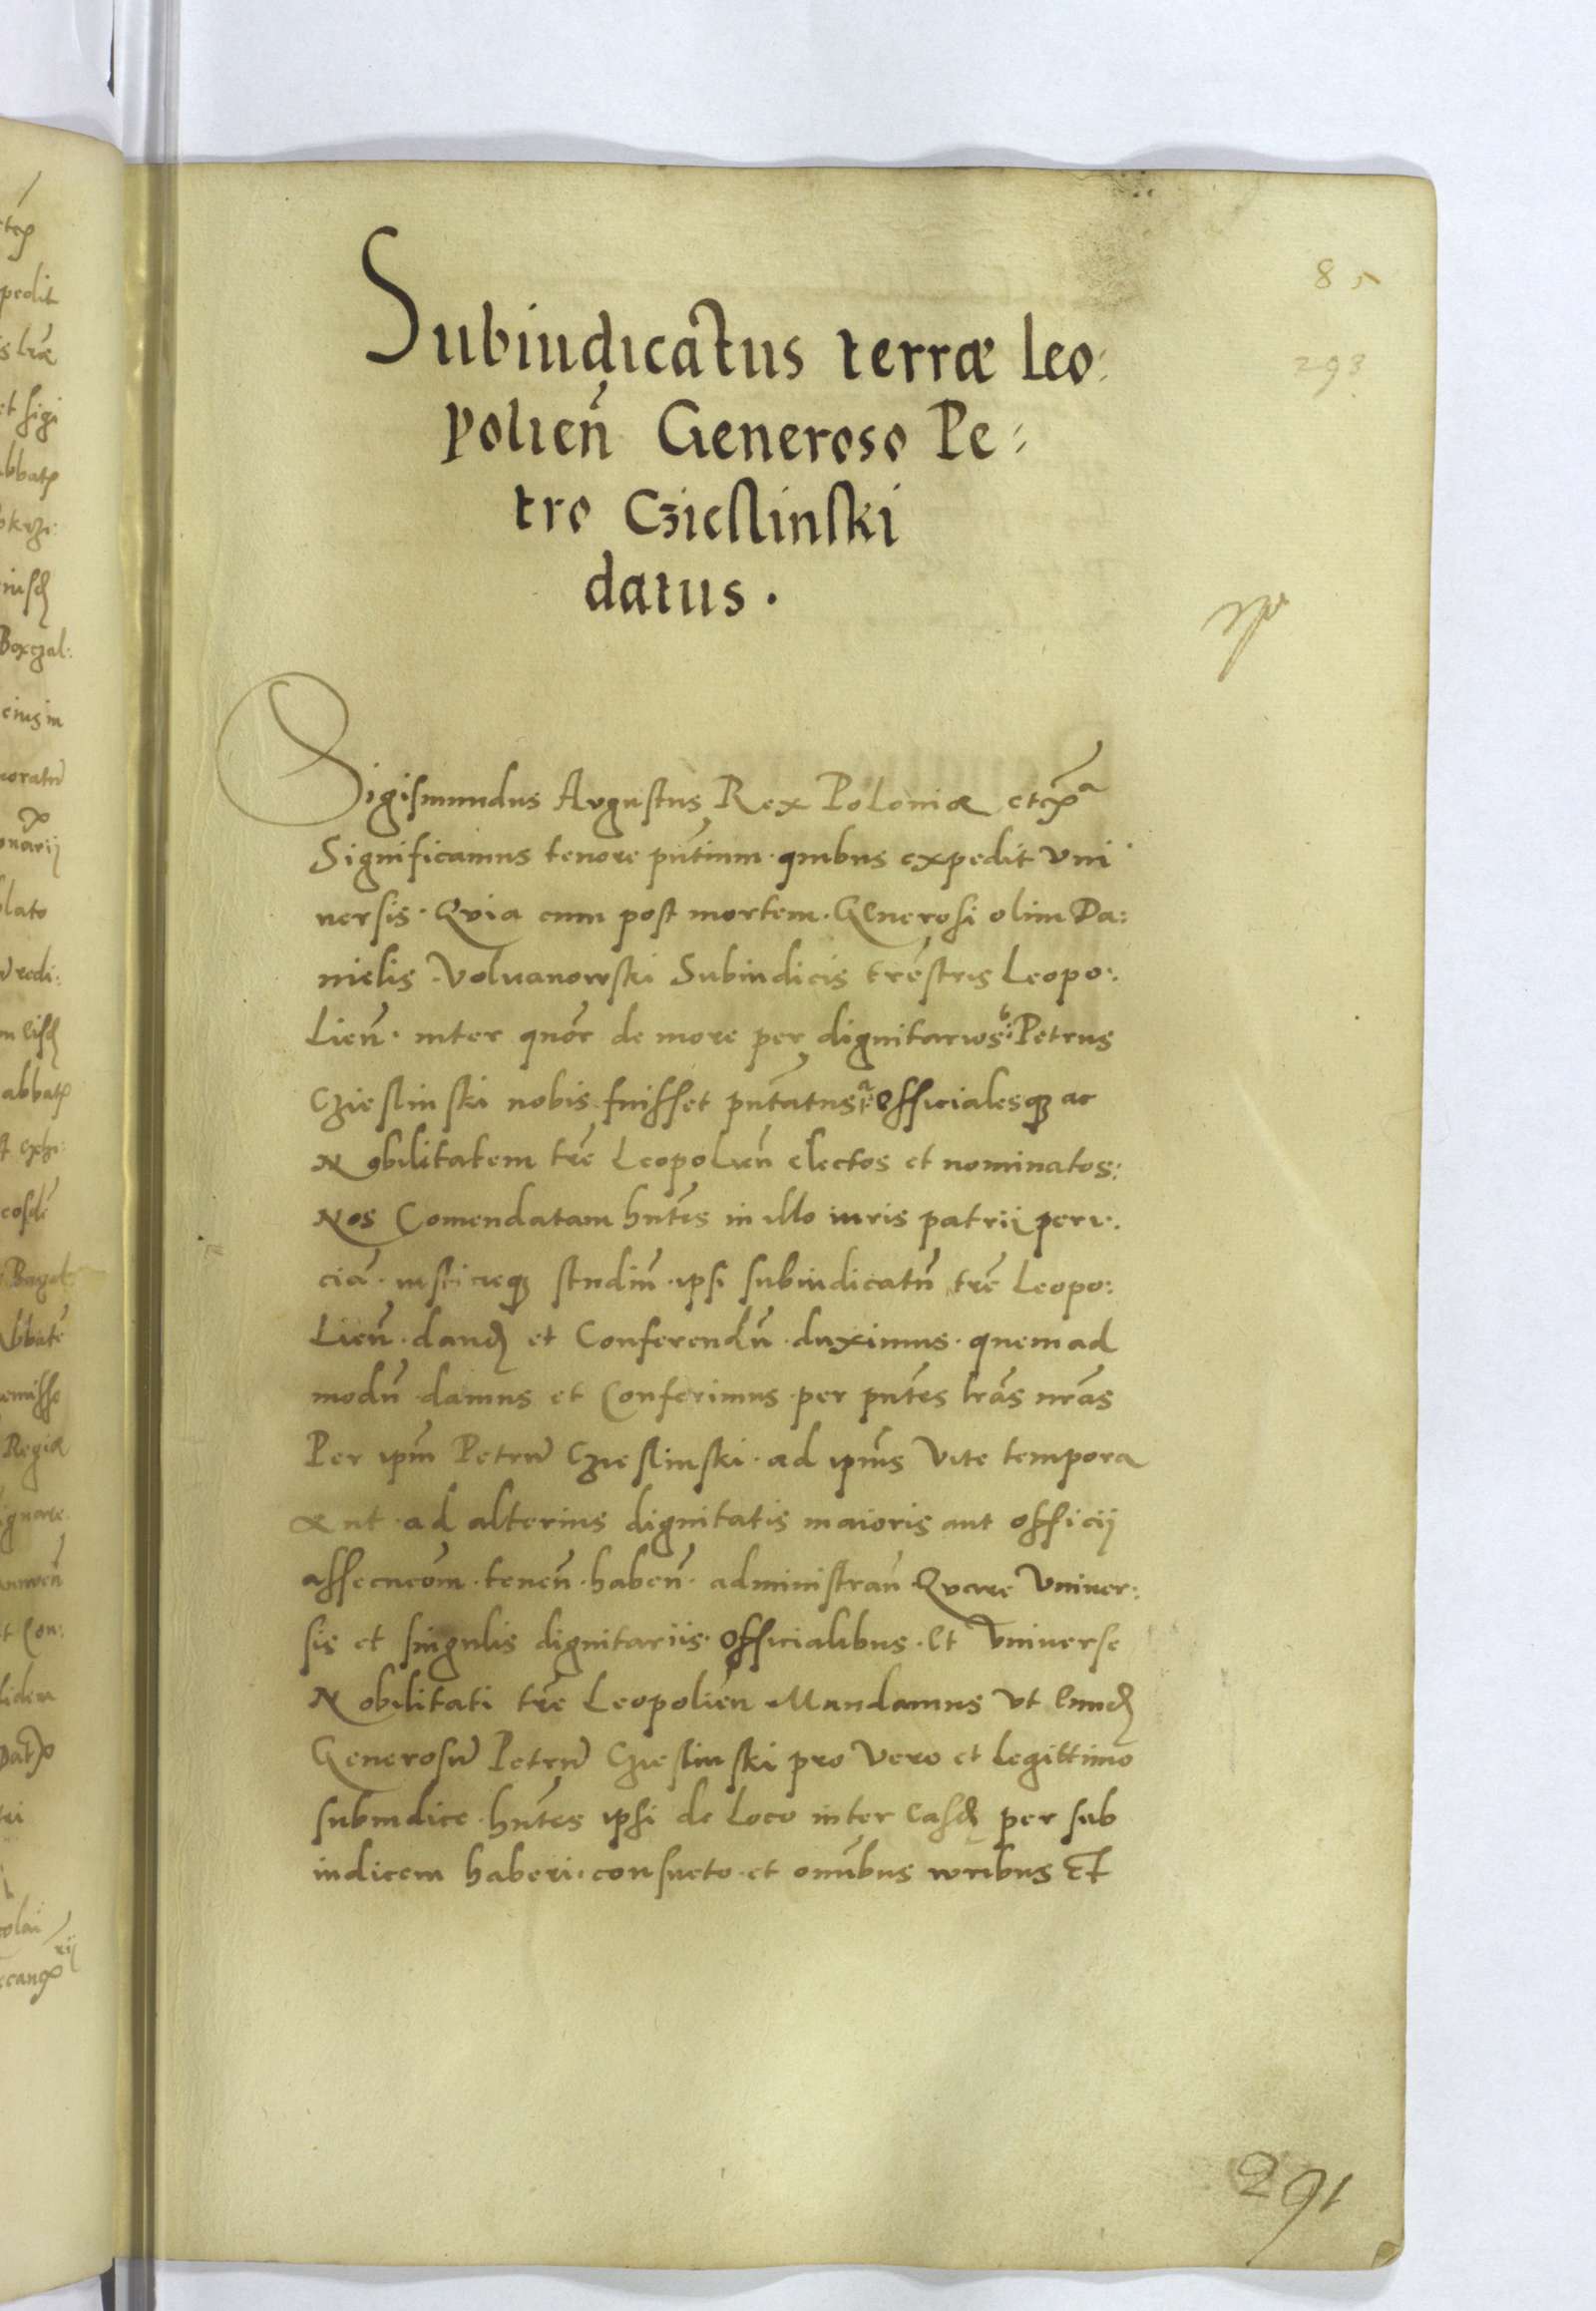 85
293
Subiudicatus terræ Leo:
polien̄ Generoso Pe:
tro Czieslinski
datus.
Sigismundus Augustus Rex Poloniæ etc̄a
Significamus tenore pn̄tium quibus expedit Vni
uersis. Quia cum post mortem. GEnerosi olim Da:
nielis Voluanowski Subiudicis tr̄estris Leopo:
Lien̄. inter quor̄ de more per dignitarios b Petrus
Czieslinski nobis fuisset pn̄tatus a Officialesq3 ac
Nobilitatem tr̄e Leopolien̄ electos et nominatos:
Nos Comendatam hn̄tes in illo iuris patrii peri:
ciā. iusticieq3 studiū ipsi subiudicatū tr̄e Leopo:
Lien̄. dand et Conferendū duximus. quemad
modū damus et Conferimus per pn̄tes lrās nrās
Per ipm̄ Petrū Czieslinski. ad ipius Vite tempora
aut ad alterius dignitatis maioris aut officij
assecucōm. tenen̄. haben̄. administran̄ Quare Vniuer:
sis et singulis dignitariis. Officialibus. Et Vniuerse
Nobilitati tr̄e Leopolien̄ Mandamus Vt Eund
Generosū Petrū Czieslinski pro Vero et Legittimo
subiudice hn̄tes ipsi de Loco inter Easd per sub
iudicem haberi consueto et om̄ibus iuribus Et
291